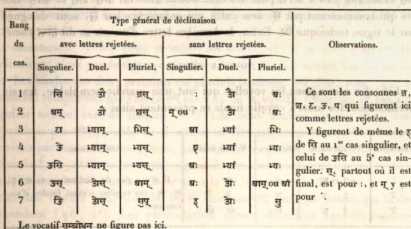 Rang du cas.
Type général de déclinaison
avec lettres rejetées. sans lettres rejetées. Observations.
Singulier. Duel. Pluriel. Singulier. Duel. Pluriel.
1 सि औ जस् औ षः
2 अम् औ शस् म् ou औ षः
3 टा भ्याम् भिस् भ्यां भिः
4 ङे भ्याम् भ्यस् ए भ्यां भ्यः
5 ङसि भ्याम् भ्यस् षः भ्यां भ्यः
6 ङस् ओस् षः
7 ङि ओस् सुप् इ सु
Ce sont les consonnes ज,
श, ट, ङ, प qui figurent ici
comme lettres rejetées.
Y figurent de même le इ
de सि au 1er cas singulier, et
celui de ङसि au 5e cas sin-
gulier. स्, partout où il est
final, est pour :, et म् y est
pour
Le vocatif सम्बोधन ne figure pas ici.